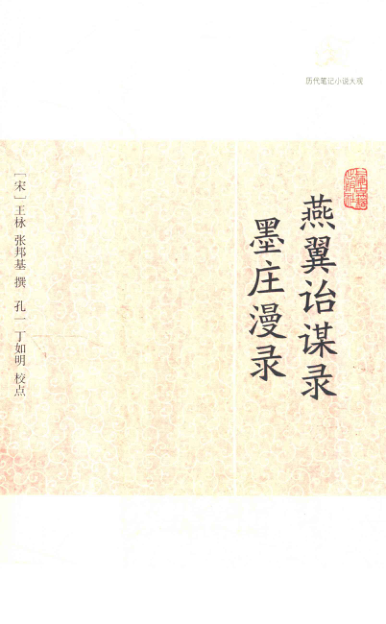 历代笔记小说大观
燕翼诒谋录
墨庄漫录
［宋］王栐 张邦基 撰 孔一 丁如明 校点